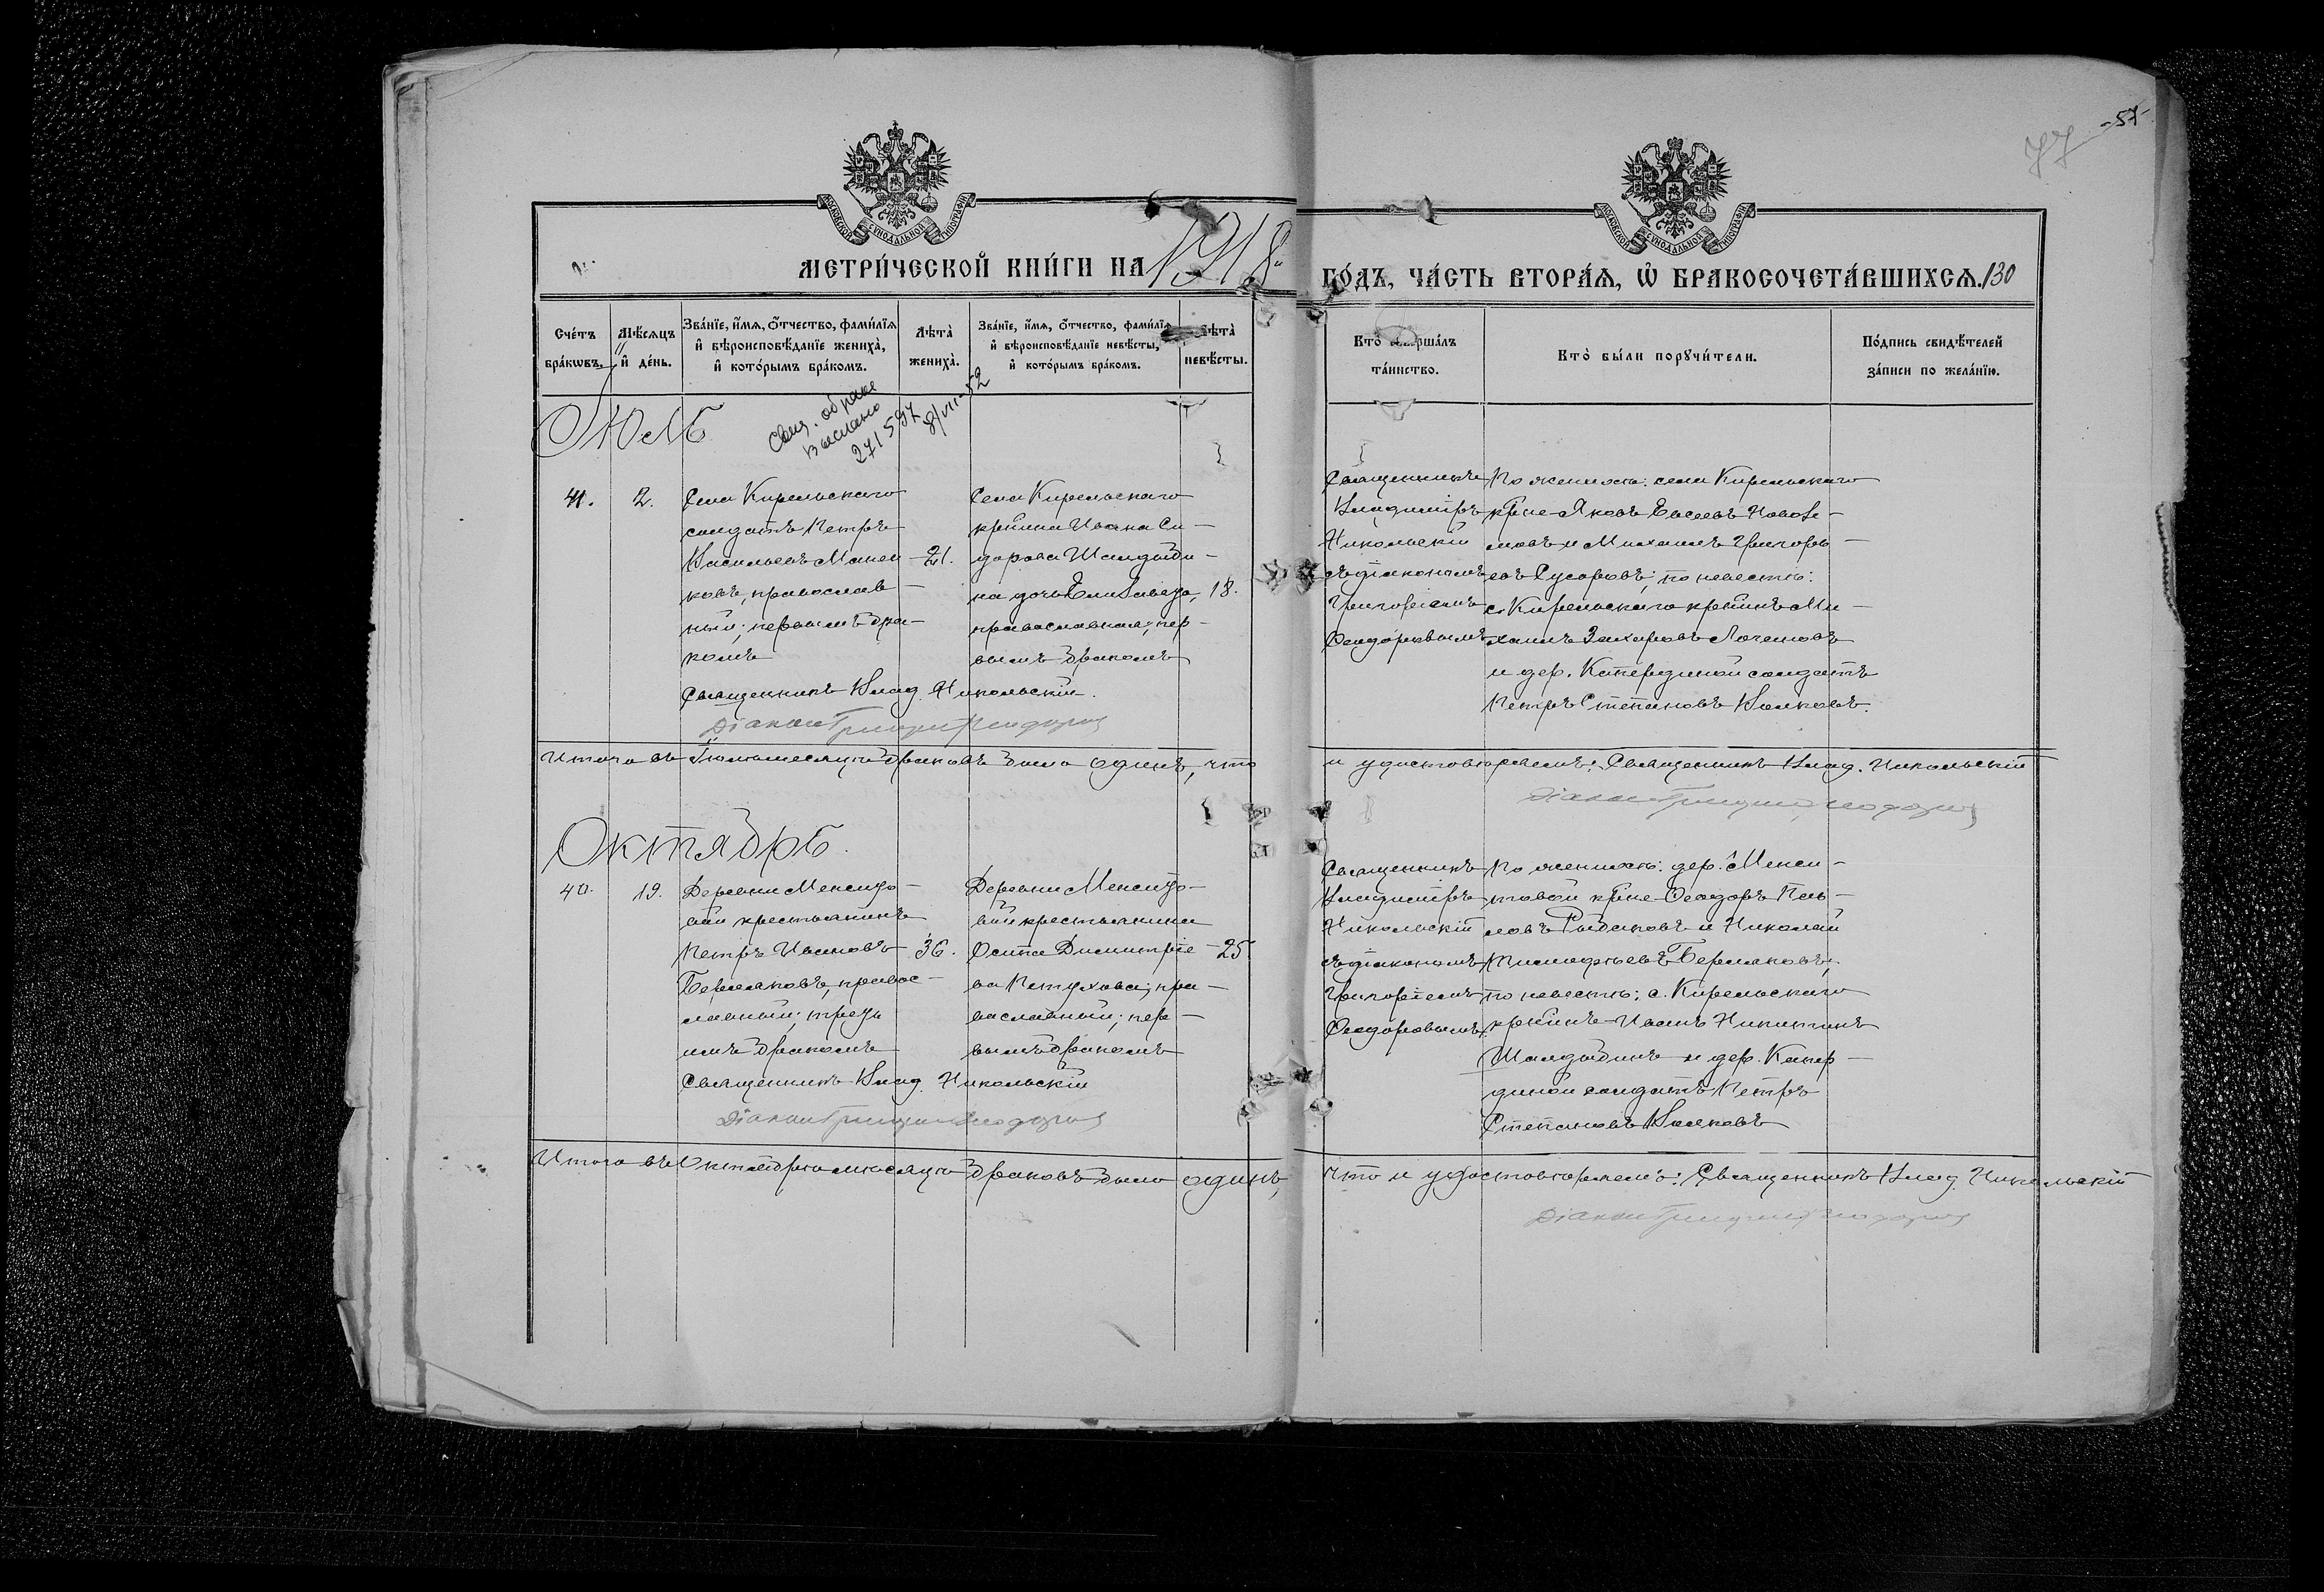 77
-57-
МОСКОВСКОЙ СѴНОДАЛЬНОЙ ТИПОГРАФІИ
МОСКОВСКОЙ СѴНОДАЛЬНОЙ ТИПОГРАФІИ
МЕТРИ́ЧЕСКОЙ КНИ́ГИ НА 1918
ГО́ДЪ, ЧА́СТЬ ВТОРА́Я, Ѡ БРАКОСОЧЕТА́ВШИХСЯ. 130
Сче́тъ бра́кѡвъ.
Мѣ́сяцъ и҆ де́нь.
Зва́нїе, и҆́мя, ѻ҆́тчество, фами́лїя и҆ вѣроисповѣ́данїе жениха̀, и҆ кото́рымъ бра́комъ.
Лѣта̀ жениха̀.
Зва́нїе, и҆́мя, ѻ҆́тчество, фами́лїя и҆ вѣроисповѣ́данїе невѣ́сты, и҆ кото́рымъ бра́комъ.
Лѣта̀ невѣ́сты.
Кто̀ соверша́лъ та́инство.
Кто̀ бы́ли порꙋчи́тели.
По́дпись свидѣ́телей за́писи по жела́нїю.
Свид. о браке
выслано
271597
8/VII-52
Іюль
2.
Села Кирельскаго
солдатъ Петръ
Васильевъ Манен-
ковъ, православ-
ный; первымъ бра-
комъ
21.
Села Кирельскаго
кр҃нина Ивана Си-
дорова Шалдыби-
на дочь Елизавета,
православная; пер-
вымъ бракомъ
18.
Священникъ
Владимiръ
Никольскiй
съ дiакономъ
Григорiемъ
Феодоровымъ
По женихѣ: села Кирельскаго
кр҃не Яковъ Евсеевъ Новосе-
ловъ и Михаилъ Григорь-
евъ Сусоровъ; по невестѣ:
с. Кирельскаго кр҃нинъ Ми-
хаилъ Захаровъ
и дер. солдатъ
Петръ Степановъ Волковъ.
Священникъ Влад. Никольскiй.
Дiаконъ Григорий Феодоров
Итого въ Iюлѣ месяцѣ браковъ было одинъ, что
и удостовѣряемъ: Священникъ Влад. Никольскiй
Дiаконъ Григорий Феодоров
Октябрь.
19.
Деревни Менситo-
вой крестьянинъ
Петръ Ивановъ
Бермаковъ, правос-
лавный; треть-
имъ бракомъ
36.
Деревни Менсито-
вой крестьянина
Осипа Димитрiе-
ва Петухова; пра-
вославный; пер-
вымъ бракомъ
25
Священникъ
Владимiръ
Никольскiй
съ дiакономъ
Григорiемъ
Феодоровымъ.
По женихѣ: дер. Менси-
товой кр҃не Феодоръ Пав-
ловъ Рыбаковъ и Николай
Тимофеевъ Бермаковъ;
по невестѣ: с. Кирельскаго
кр҃нинъ Иванъ Никитинъ
Шалдыбинъ и дер.
солдатъ Петръ
Степановъ Волковъ
Священникъ Влад. Никольскiй
Дiаконъ Григорий Феодоров
Итого въ Октябрѣ месяцѣ браковъ было одинъ,
что и удостовѣряемъ: Священникъ Влад. Никольскiй
Дiаконъ Григорий Феодоров